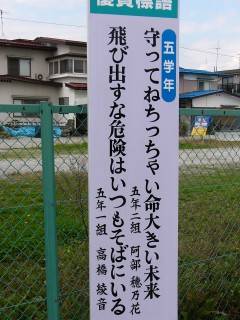 優良標語
五学年
守ってねちっちゃい命大きい未来
五年二組 阿部 穂乃花
飛び出すな危険はいつもそばにいる
五年一組 高橋 綾音